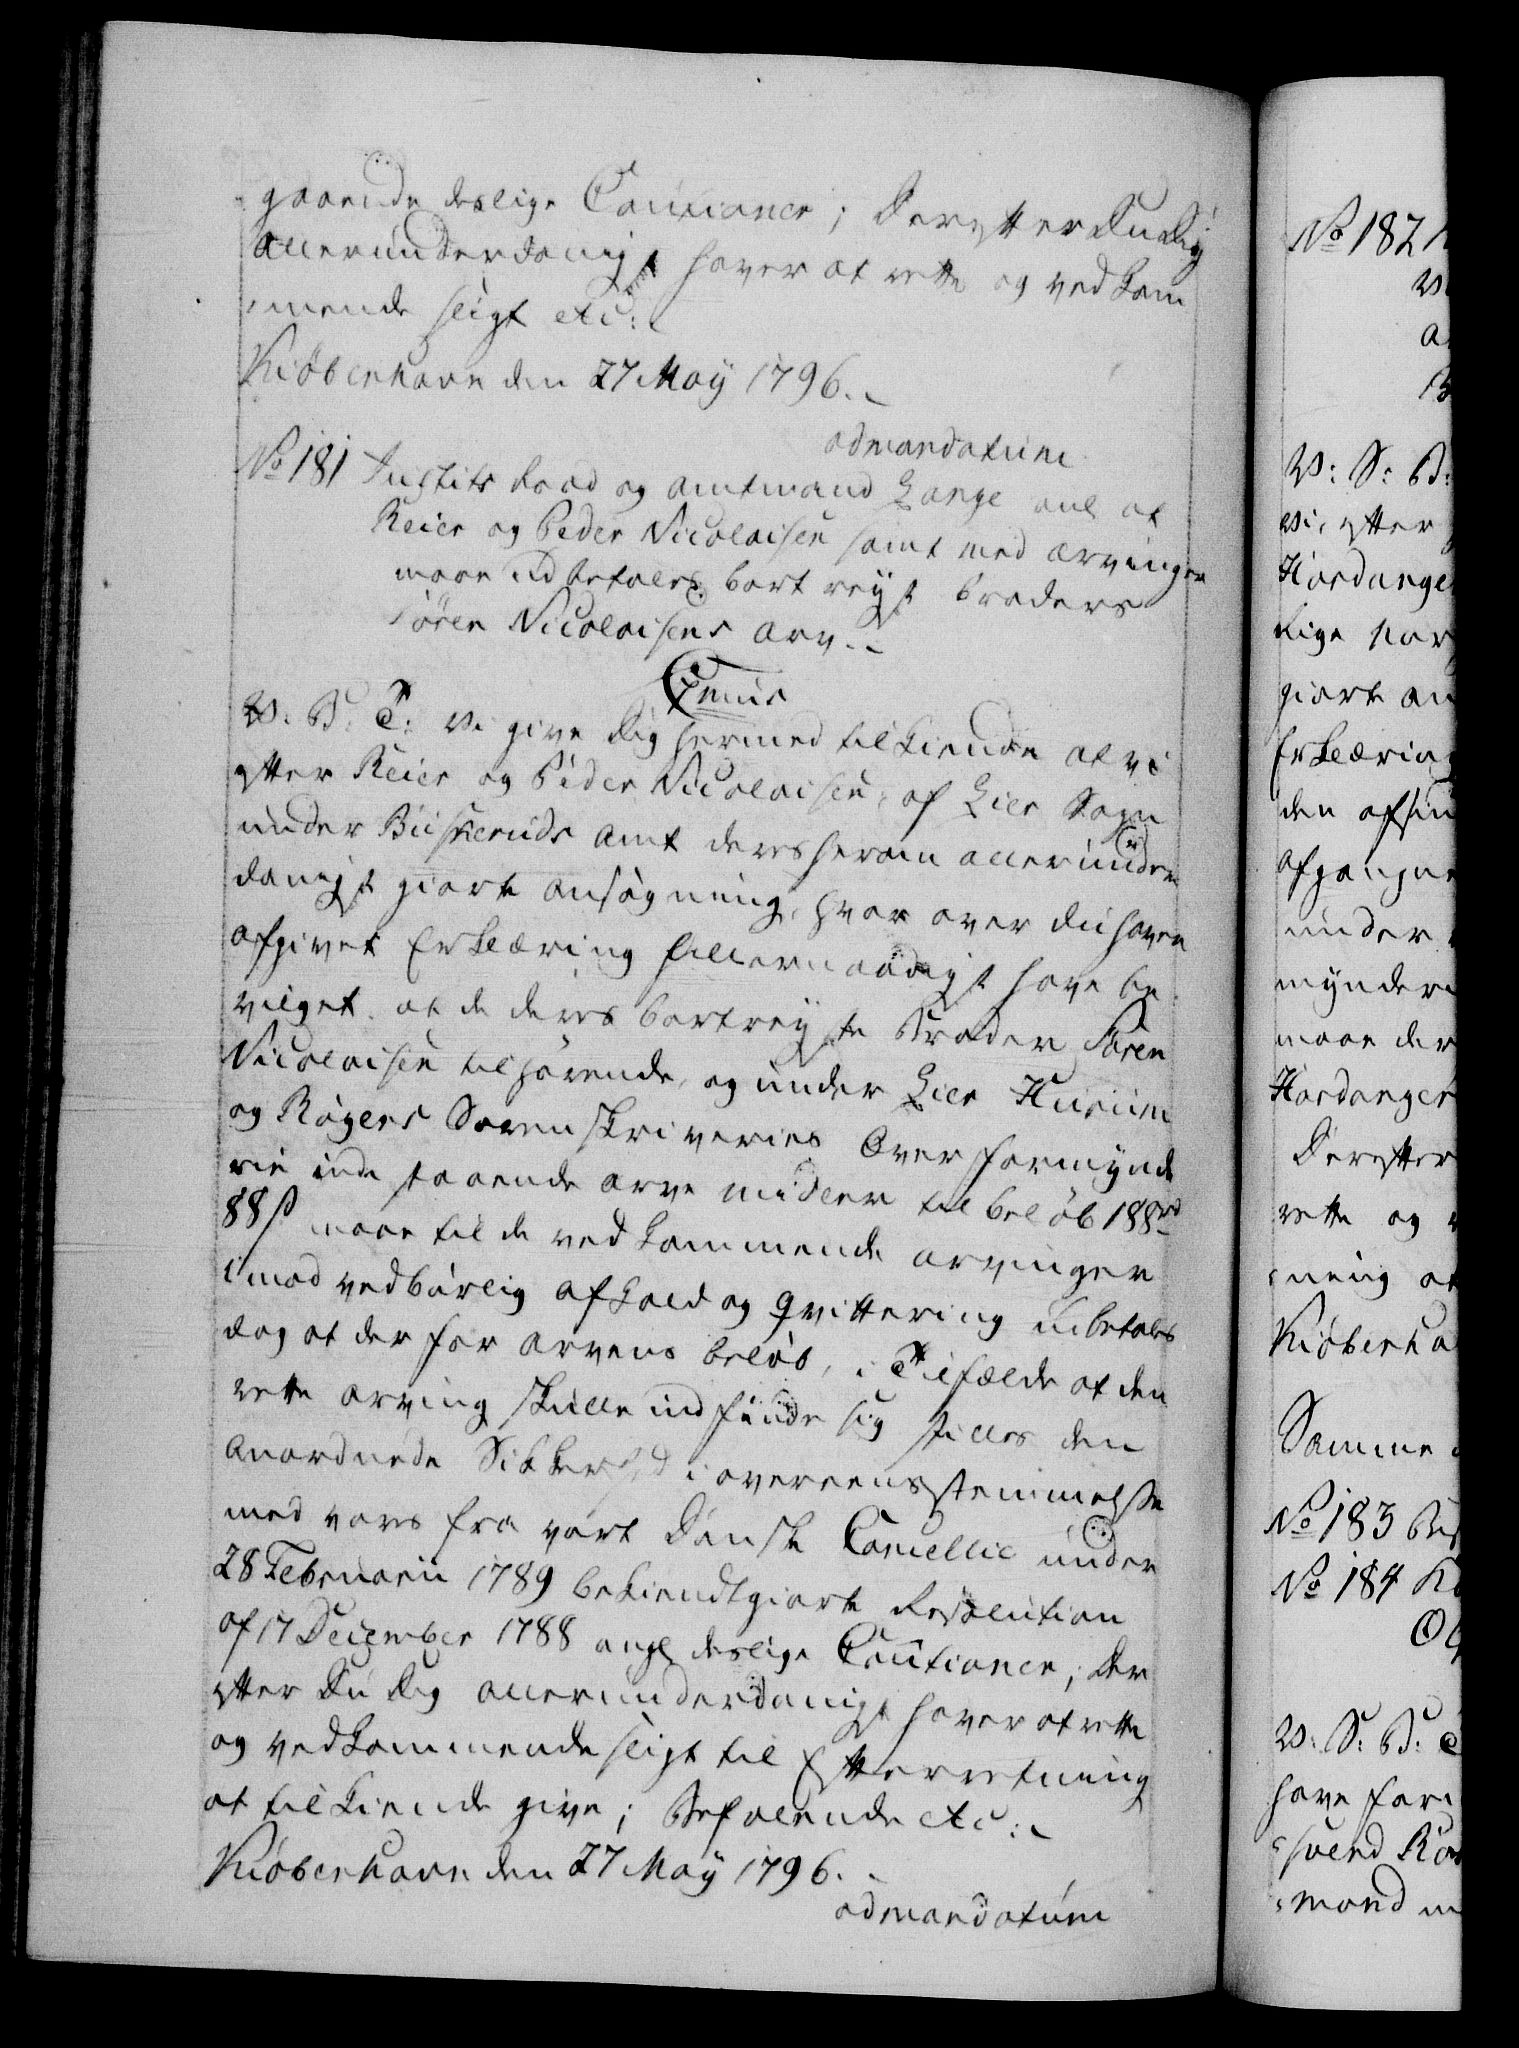 gaaende deslige Cautioner; Derefter Du Dig
allerunderdanigst haver at rette og vedkom
mende sligt etc:
Kiøbenhavn den 27 May 1796.
ad mandatum
No 181 Justits Raad og Amtmand Lange anl at
Reier og Peder Nicolaisen samt med arvinger
maae udbetales bortreyst broders
Sören Nicolaisens arv.
V. S. B. T. Vi give Dig hermed tilkiende at vi
efter Reier og Peder Nicolaisen, af Lier Sogn
under Buskeruds Amt deres herom allerunder
danigst giorte ansøgning, hvor over du haver
afgivet Erklæring allernaadigst have be
vilget at de deres bortreyste Broder Sören
Nicolaisen tilhørende, og under Lier Hurum
og Røgens Sorenskriveries Overformynde
rie inde staaende arve midler til beløb 188 rd
88 s maae til de vedkommende arvinger
imod vedbørlig afkald og Qvittering udbetales
dog at der for arvens beløb, i Tilfælde at den
rette arving skulle indfinde sig stilles den
anordnede Sikkerhed i overeensstemmelse
med vores fra vort Danske Cancellie under
28 Februarii 1789 bekiendtgiorte Resolution
af 17 December 1788 angl deslige Cautioner; Der
efter Du Dig allerunderdanigst haver at rette
og vedkommende sligt til Efterretning
at tilkiende give; Befalende etc:
Kiøbenhavn den 27 May 1796.
ad mandatum
No 182
V: S: B:
vi, efter
Hardanger
lige har
giorte an
Erklæring
den afsin
afgangne
under
myndere
maae der
Hardanger
Derefter
rette og
ning at
Kiøbenha
Samme
No 183
No 184
V. S: B: T
have fore
svend
mand